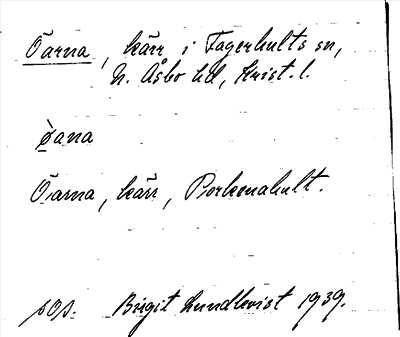 Öarna, kärr i Fagerhults sn,
N. Åsbo hd, Krist. l.
öana
Öarna, kärr, Porkenahult.
sos. Birgit Lundkvist 1939.